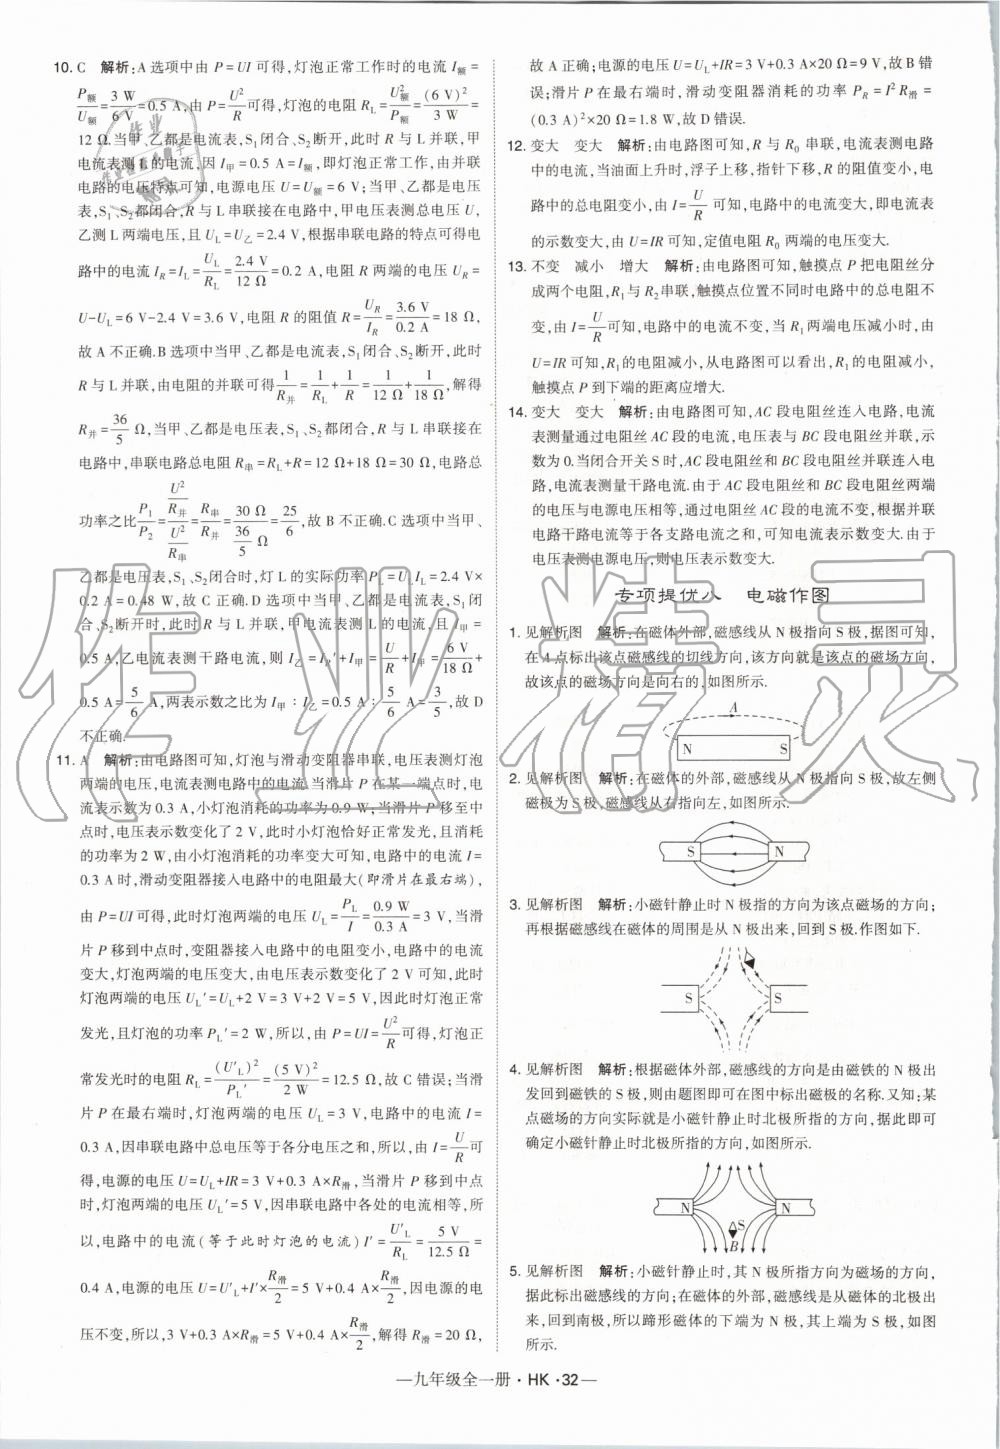 10. C 解析:A选项中由P=UI可得,灯泡正常工作时的电流I额=
P额/U额=3 W/6 V=0.5 A,由P=U²/R可得,灯泡的电阻R_L=U²额/P额=(6 V)²/3 W=
12 Ω.当甲、乙都是电流表,S₁闭合、S₂断开,此时R与L并联,甲
电流表测L的电流,因I甲=0.5 A=I额,即灯泡正常工作,由并联
电路的电压特点可知,电源电压U=U额=6 V;当甲、乙都是电压
表,S₁、S₂都闭合,R与L串联接在电路中,甲电压表测总电压U,
乙测L两端电压,且U_L=U乙=2.4 V,根据串联电路的特点可得电
路中的电流I_R=I_L=U_L/R_L=2.4 V/12 Ω=0.2 A,电阻R两端的电压U_R=
U-U_L=6 V-2.4 V=3.6 V,电阻R的阻值R=U_R/I_R=3.6 V/0.2 A=18 Ω,
故A不正确.B选项中当甲、乙都是电流表,S₁闭合、S₂断开,此时
R与L并联,由电阻的并联可得1/R并=1/R_L+1/R=1/12 Ω+1/18 Ω,解得
R并=36/5 Ω,当甲、乙都是电压表,S₁、S₂都闭合,R与L串联接在
电路中,串联电路总电阻R串=R_L+R=12 Ω+18 Ω=30 Ω,电路总
功率之比P₁/P₂=(U²/R并)/(U²/R串)=R串/R并=30 Ω/(36/5 Ω)=25/6,故B不正确.C选项中当甲、
乙都是电压表,S₁、S₂闭合时,灯L的实际功率P_L=U_LI_L=2.4 V×
0.2 A=0.48 W,故C正确.D选项中当甲、乙都是电流表,S₁闭
合、S₂断开时,此时R与L并联,甲电流表测L的电流,且I甲=
0.5 A,乙电流表测干路电流,则I乙=I_R′+I甲=U/R+I甲=6 V/18 Ω+
0.5 A=5/6 A,两表示数之比为I甲∶I乙=0.5 A∶5/6 A=3/5,故D
不正确.
11. A 解析:由电路图可知,灯泡与滑动变阻器串联,电压表测灯泡
两端的电压,电流表测电路中的电流.当滑片P在某一端点时,电
流表示数为0.3 A,小灯泡消耗的功率为0.9 W;当滑片P移至中
点时,电压表示数变化了2 V,此时小灯泡恰好正常发光,且消耗
的功率为2 W,由小灯泡消耗的功率变大可知,电路中的电流I=
0.3 A时,滑动变阻器接入电路中的电阻最大(即滑片在最右端),
由P=UI可得,此时灯泡两端的电压U_L=P_L/I=0.9 W/0.3 A=3 V,当滑
片P移到中点时,变阻器接入电路中的电阻变小,电路中的电流
变大,灯泡两端的电压变大,由电压表示数变化了2 V可知,此时
灯泡两端的电压U_L′=U_L+2 V=3 V+2 V=5 V,因此时灯泡正常
发光,且灯泡的功率P_L′=2 W,所以,由P=UI=U²/R可得,灯泡正
常发光时的电阻R_L=(U′_L)²/P_L′=(5 V)²/2 W=12.5 Ω,故C错误;当滑
片P在最右端时,灯泡两端的电压U_L=3 V,电路中的电流I=
0.3 A,因串联电路中总电压等于各分电压之和,所以,由I=U/R可
得,电源的电压U=U_L+IR=3 V+0.3 A×R滑,当滑片P移到中点
时,灯泡两端的电压U_L′=5 V,因串联电路中各处的电流相等,所
以,电路中的电流(等于此时灯泡的电流)I′=U′_L/R_L=5 V/12.5 Ω=
0.4 A,电源的电压U=U′_L+I′×R滑/2=5 V+0.4 A×R滑/2,因电源的电
压不变,所以,3 V+0.3 A×R滑=5 V+0.4 A×R滑/2,解得R滑=20 Ω,
故A正确;电源的电压U=U_L+IR=3 V+0.3 A×20 Ω=9 V,故B错
误;滑片P在最右端时,滑动变阻器消耗的功率P_R=I²R滑=
(0.3 A)²×20 Ω=1.8 W,故D错误.
12. 变大 变大 解析:由电路图可知,R与R₀串联,电流表测电路
中的电流,当油面上升时,浮子上移,指针下移,R的阻值变小,电
路中的总电阻变小,由I=U/R可知,电路中的电流变大,即电流表
的示数变大,由U=IR可知,定值电阻R₀两端的电压变大.
13. 不变 减小 增大 解析:由电路图可知,触摸点P把电阻丝分
成两个电阻,R₁与R₂串联,触摸点位置不同时电路中的总电阻不
变,由I=U/R可知,电路中的电流不变,当R₁两端电压减小时,由
U=IR可知,R₁的电阻减小,从电路图可以看出,R₁的电阻减小,
触摸点P到下端的距离应增大.
14. 变大 变大 解析:由电路图可知,AC段电阻丝连入电路,电流
表测量通过电阻丝AC段的电流,电压表与BC段电阻丝并联,示
数为0.当闭合开关S时,AC段电阻丝和BC段电阻丝并联连入电
路,电流表测量干路电流.由于AC段电阻丝和BC段电阻丝两端
的电压与电源电压相等,通过电阻丝AC段的电流不变,根据并联
电路干路电流等于各支路电流之和,可知电流表示数变大.由于
电压表测电源电压,则电压表示数变大.
专项提优八 电磁作图
1. 见解析图 解析:在磁体外部,磁感线从N极指向S极,据图可知,
在A点标出该点磁感线的切线方向,该方向就是该点的磁场方向,
故该点的磁场方向是向右的,如图所示.
A
N S
2. 见解析图 解析:在磁体的外部,磁感线从N极指向S极,故左侧
磁极为S极,磁感线从右指向左,如图所示.
S N
3. 见解析图 解析:小磁针静止时N极指的方向为该点磁场的方向;
再根据磁感线在磁体的周围是从N极出来,回到S极.作图如下.
S S
4. 见解析图 解析:根据磁体外部,磁感线的方向是由磁铁的N极出
发回到磁铁的S极,则由题图即可在图中标出磁极的名称.又知:某
点磁场的方向实际就是小磁针静止时北极所指的方向,据此即可
确定小磁针静止时北极所指的方向,如图所示.
N S N
B
5. 见解析图 解析:小磁针静止时,其N极所指方向为磁场的方向,
据此标出磁感线的方向;在磁体的外部,磁感线是从磁体的北极出
来,回到南极,所以蹄形磁体的下端为N极,其上端为S极,如图
所示.
—九年级全一册·HK·32—
作业精灵